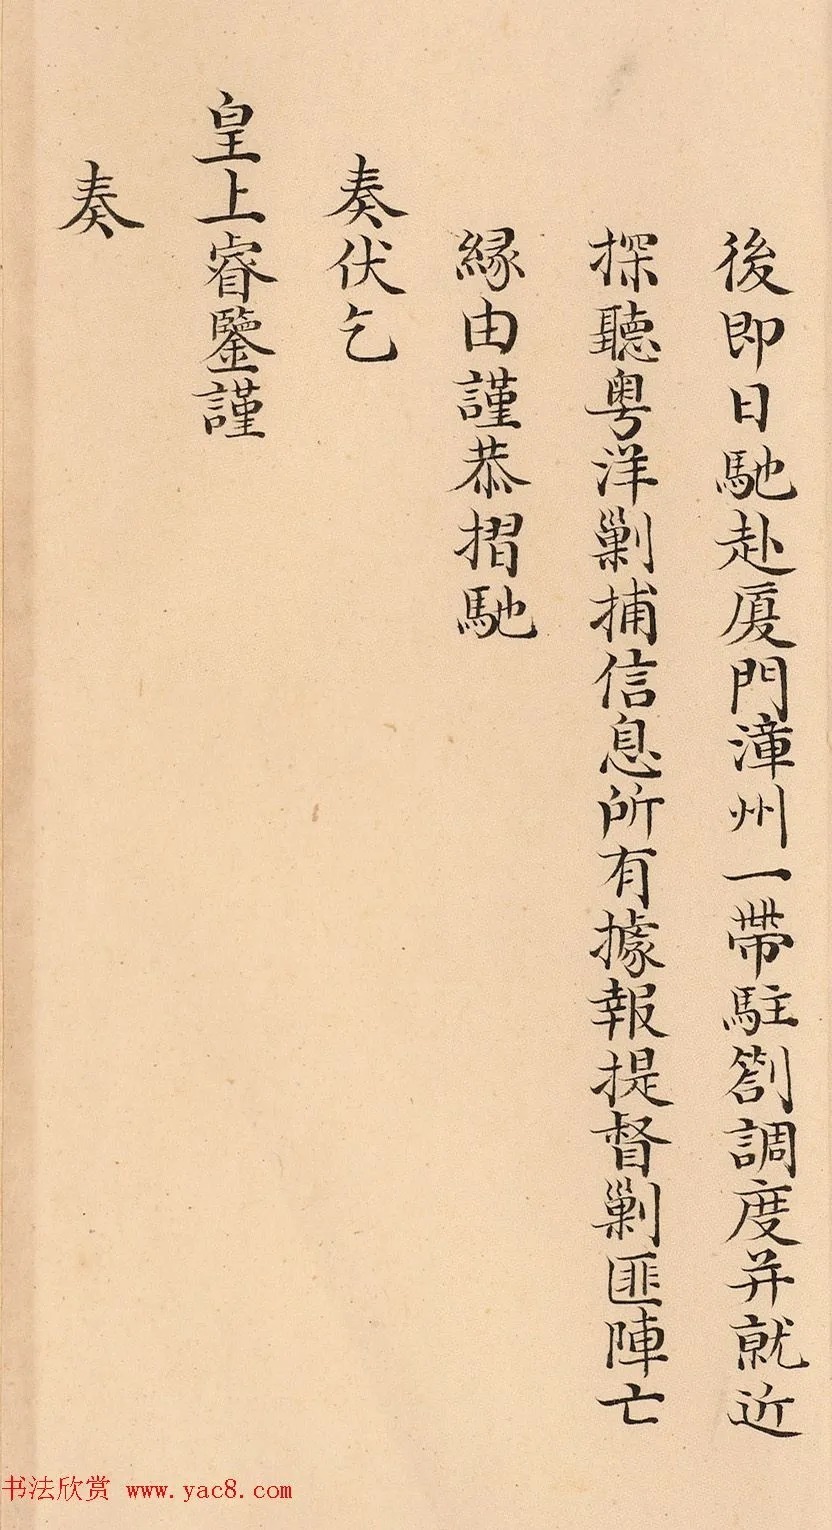 後即日馳赴厦門漳州一帶駐劄調度并就近
探聽粤洋剿捕信息所有據報提督剿匪陣亡
縁由謹恭摺馳
奏伏乞
皇上睿鑒謹
奏
书法欣赏 www.yac8.com